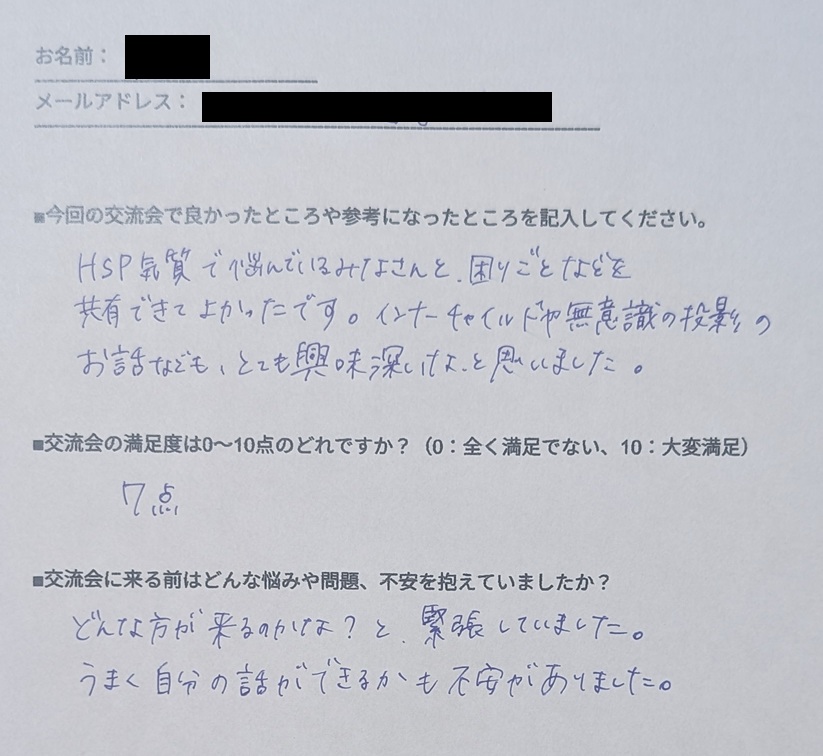 お名前：
メールアドレス：
■今回の交流会で良かったところや参考になったところを記入してください。
HSP気質で悩んでいるみなさんと、困りごとなどを
共有できてよかったです。インナーチャイルドや無意識の投影の
お話なども、とても興味深いな、と思いました。
■交流会の満足度は0～10点のどれですか？（0：全く満足でない、10：大変満足）
7点
■交流会に来る前はどんな悩みや問題、不安を抱えていましたか？
どんな方が来るのかな？と、緊張していました。
うまく自分の話ができるかも不安がありました。